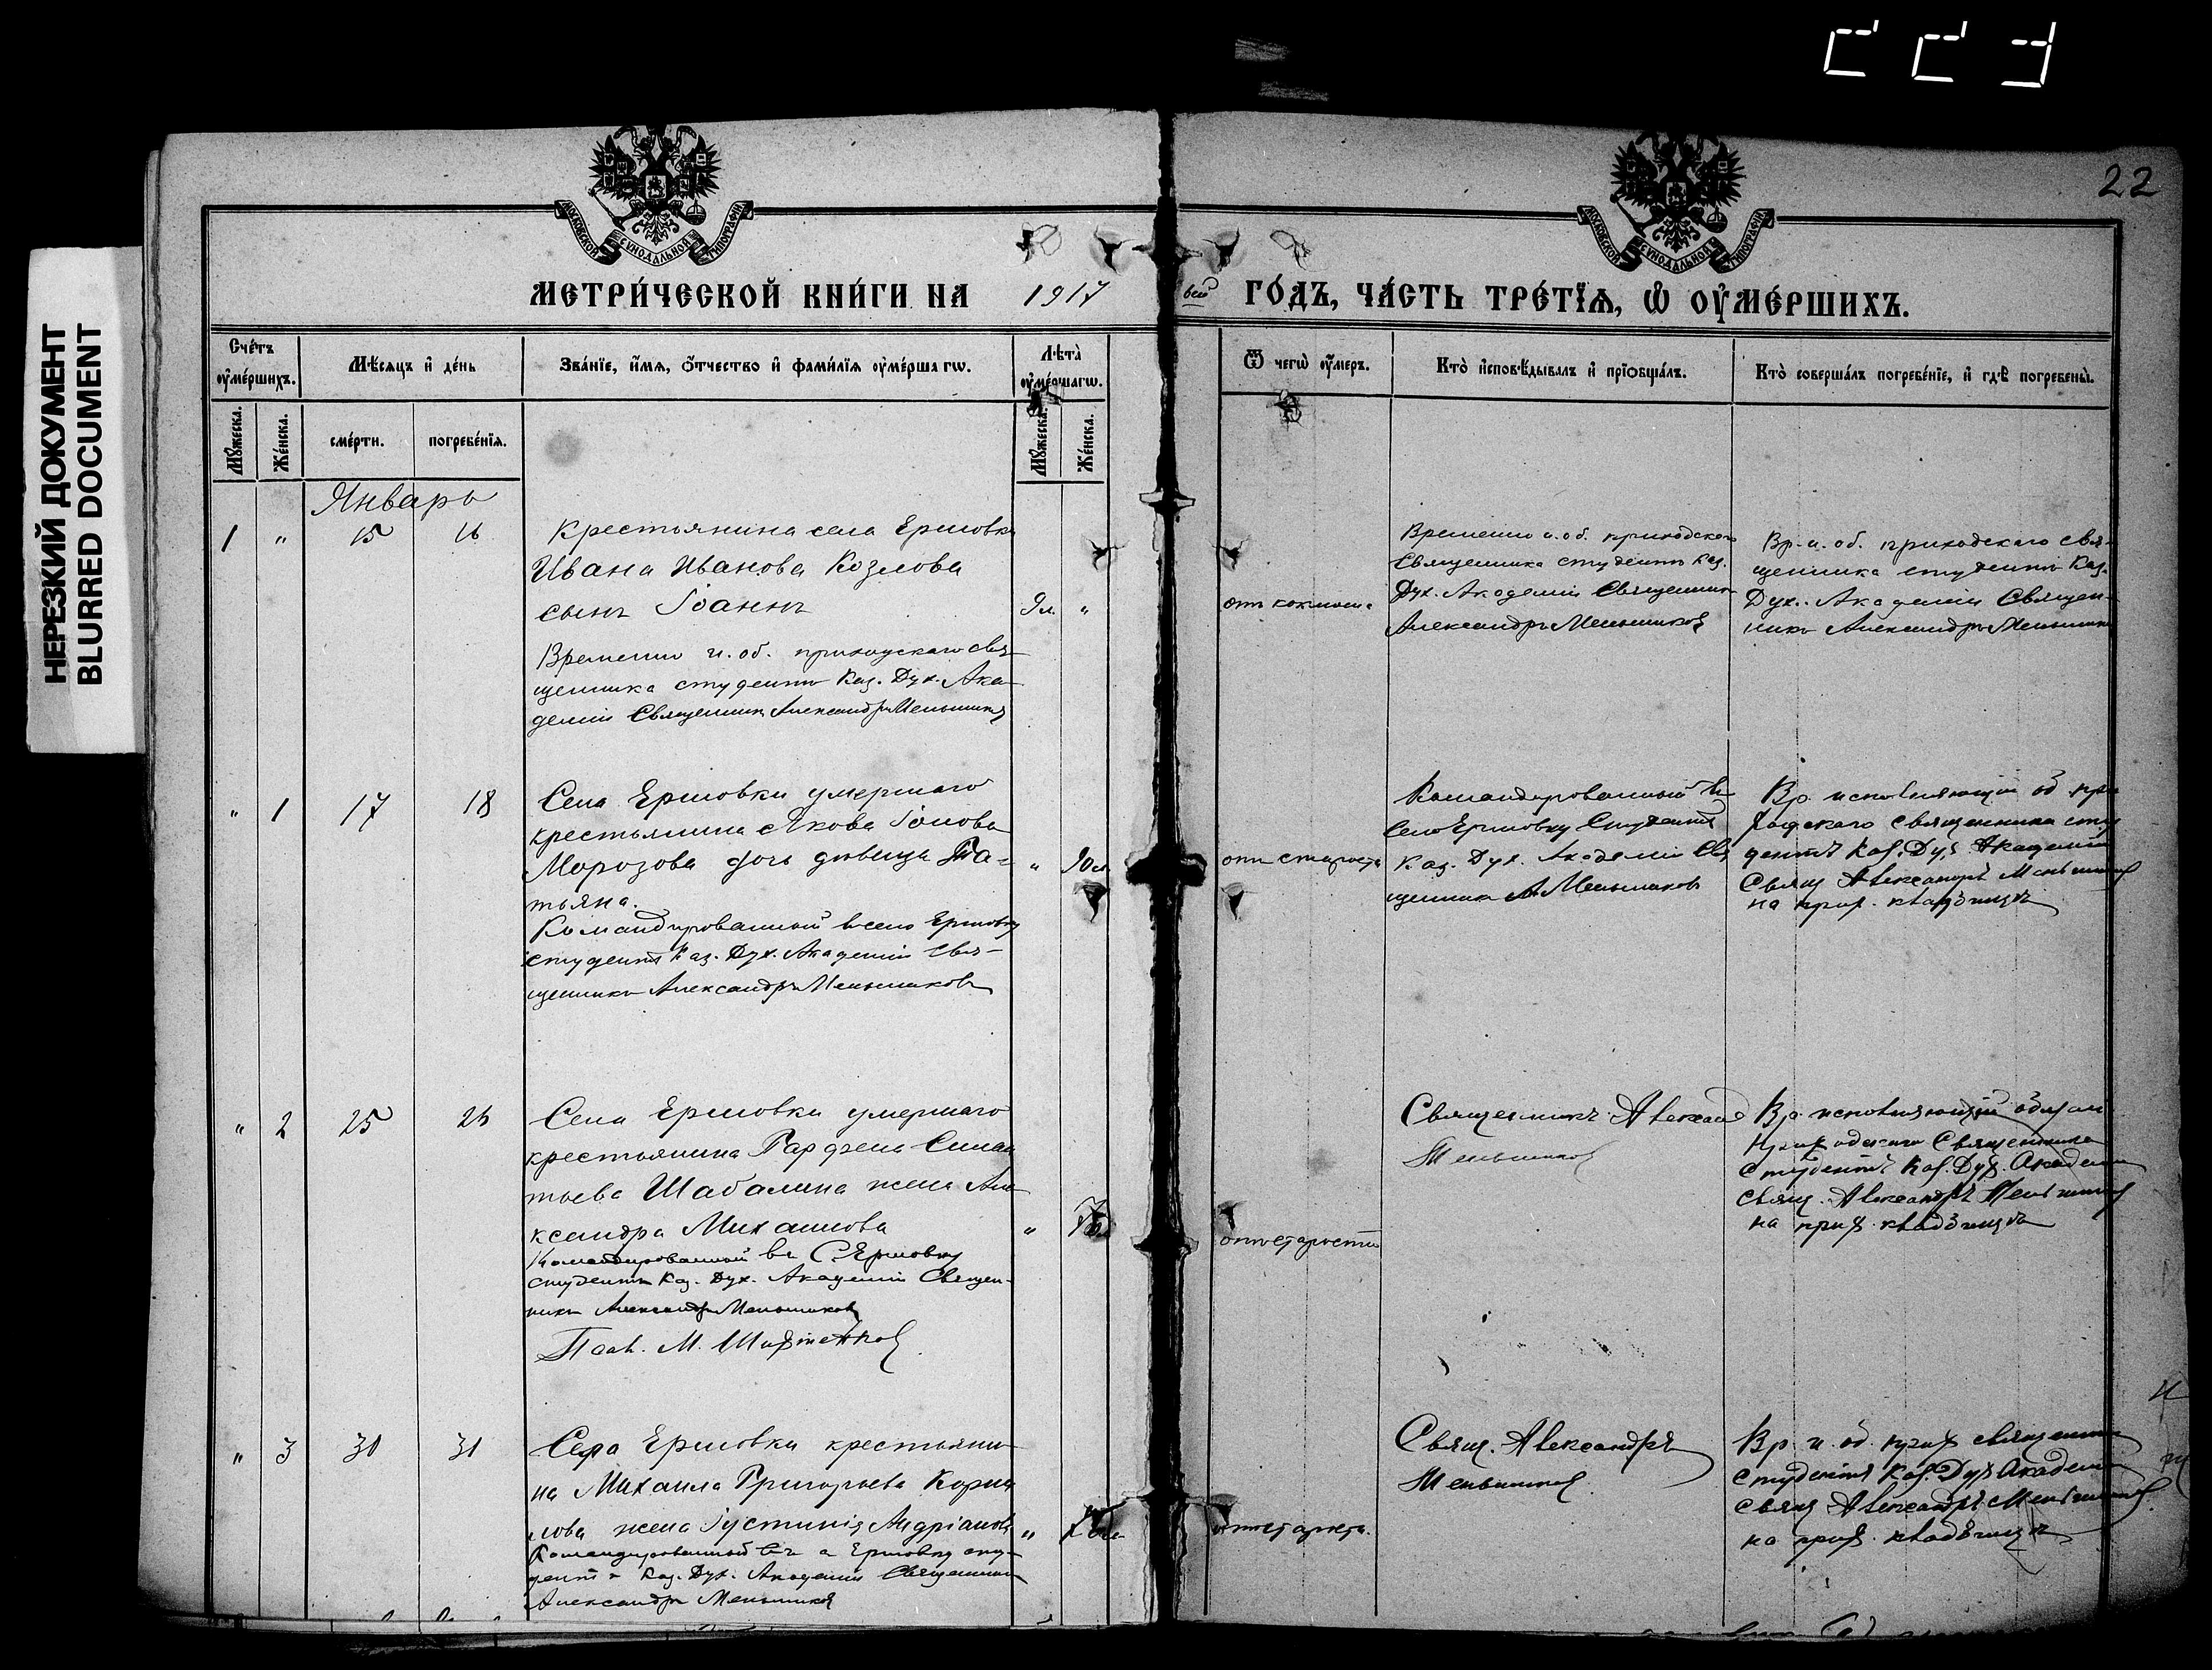 22
НЕРЕЗКИЙ ДОКУМЕНТ
BLURRED DOCUMENT
МОСКОВСКОЙ СУНОДАЛЬНОЙ ТИПОГРАФІИ
МОСКОВСКОЙ СУНОДАЛЬНОЙ ТИПОГРАФІИ
МЕТРИ́ЧЕСКОЙ КНИ́ГИ НА 1917 ый ГО́ДЪ, ЧА́СТЬ ТРЕ́ТЇѦ, Ѽ ОУ҆МЕ́РШИХЪ.
Сче́тъ оу҆ме́ршихъ.
Мѣ́сяцъ и҆ де́нь
Зва́нїе, и҆́мя, ѻ҆́тчество и҆ фами́лїя оу҆ме́ршагѡ.
Лѣ́та оу҆ме́ршагѡ.
Ѿ чегѡ̀ оу҆́меръ.
Кто̀ и҆сповѣ́дывалъ и҆ прїѡбща́лъ.
Кто̀ соверша́лъ погребе́нїе, и҆ гдѣ̀ погребены̀.
Мꙋ́жеска.
Же́нска.
сме́рти.
погребе́нїя.
Мꙋ́жеска.
Же́нска.
Январь
1 " 15 16
Крестьянина села Ершовки
Ивана Иванова Козлова
сынъ Іоаннъ
9л. "
Временно и. об. приходскаго свя-
щенника студентъ Каз. Дух. Ака-
деміи Священникъ Александръ Меньшиковъ
Временно и. об. приходского
Священника студентъ Каз.
Дух. Академіи Священникъ
Александръ Меньшиковъ
Вр. и. об. приходскаго свя-
щенника студентъ Каз.
Дух. Академіи Священ-
никъ Александръ Меньшиковъ
" 1 17 18
Села Ершовки умершаго
крестьянина Якова Іонова
Морозова дочь девица Та-
тьяна.
" 90 л.
Командированный въ село Ершовку
студентъ Каз. Дух. Академіи Свя-
щенникъ Александръ Меньшиковъ
отъ старости
Командированный въ
село Ершовку Студентъ
Каз. Дух. Академіи Свя
щенникъ А. Меньшиковъ
Вр. исполняющій об. при
ходскаго священника сту
дентъ Каз. Дух. Академіи
Свящ Александръ Меньшиковъ
на прих. кладбищѣ
" 2 25 26
Села Ершовки умершаго
крестьянина
Шабалина жена Але
ксандра Михаилова
"
Командированный въ С. Ершовку
студентъ Каз. Дух. Академіи Священ-
никъ Александръ Меньшиковъ
Псал. М.
отъ старости
Священникъ Александръ
Меньшиковъ
Вр. исполняющій обязан
приходскаго Священника
студентъ Каз. Дух. Академіи
свящ. Александръ Меньшиковъ
на прих. кладбищѣ
" 3 30 31
Села Ершовки крестьяни-
на Михаила Григорьева Корни
лова жена Іустинія Андріанова
"
Командированный въ с Ершовку сту-
дентъ Каз. Дух. Академіи Священникъ
Александръ Меньшиковъ
отъ старости.
Свящ. Александръ
Меньшиковъ
Вр. и. об. прих священника
студентъ Каз. Дух Академіи
свящ. Александръ Меньшиковъ
на прих. кладбищѣ